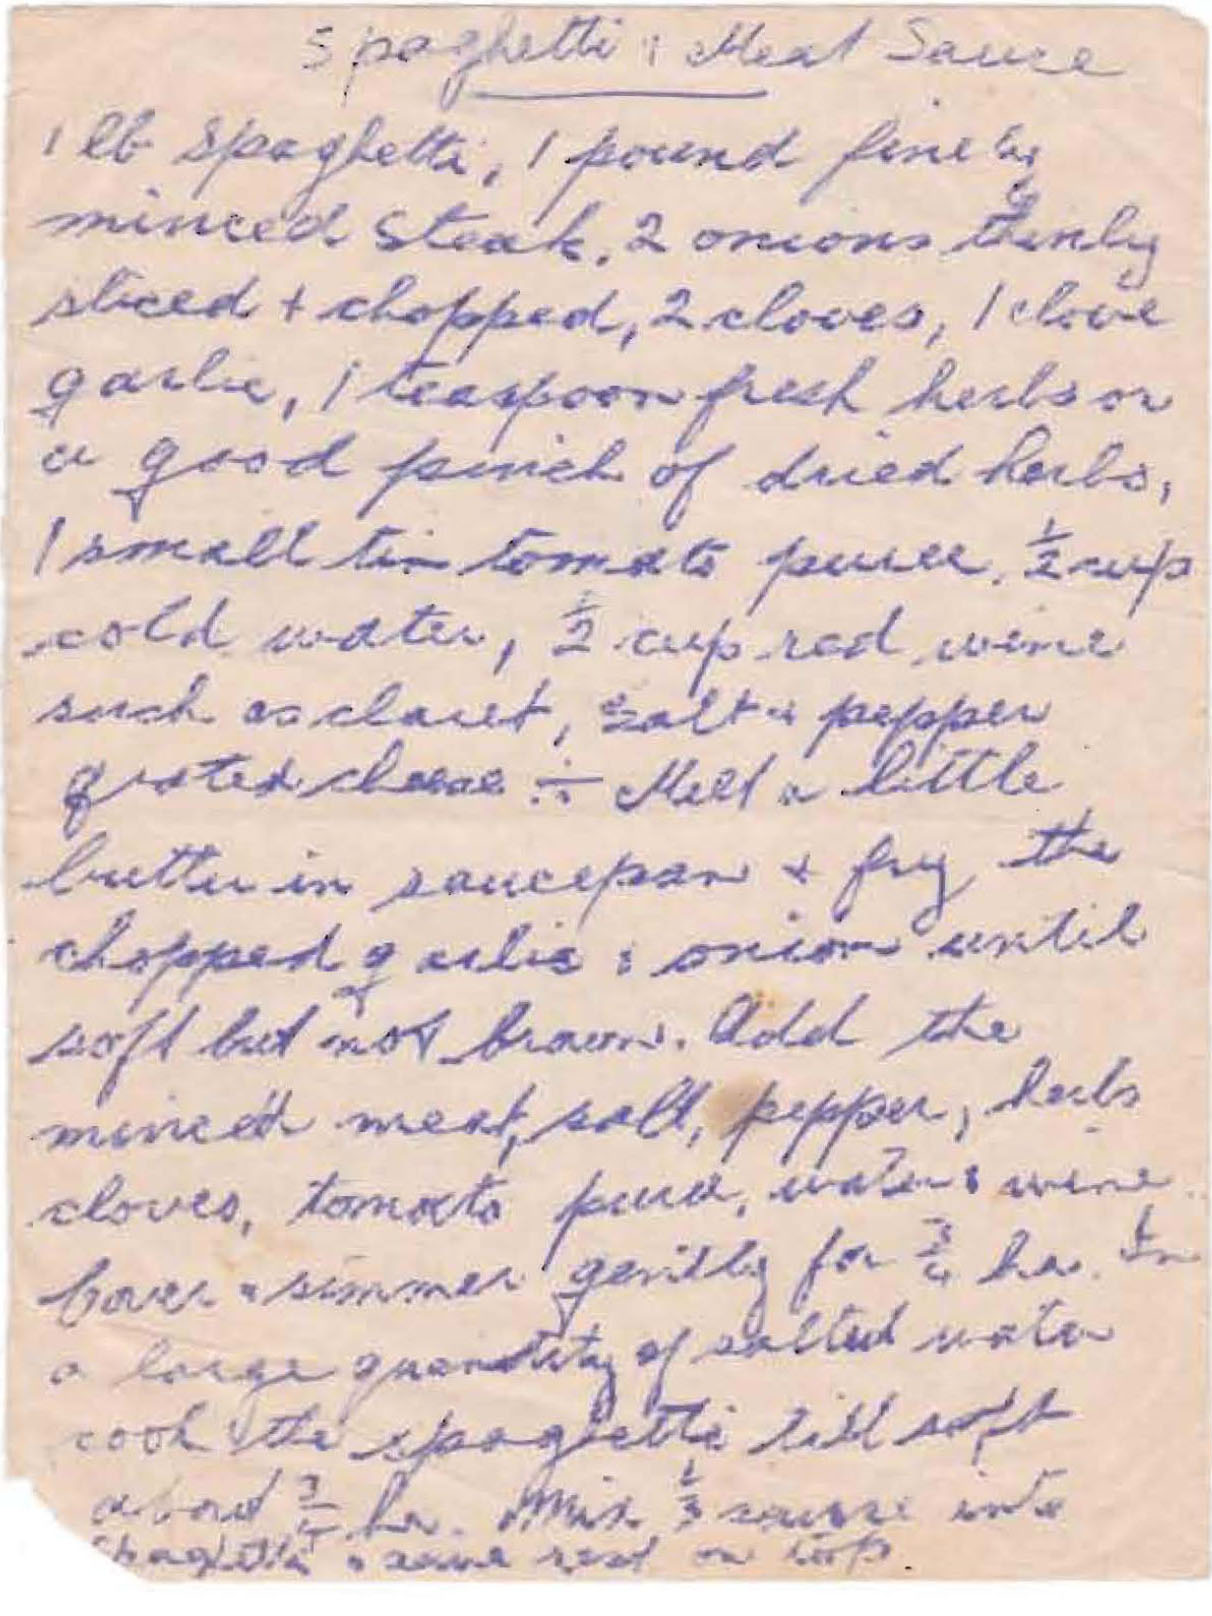 Spaghetti & Meat Sauce
1 lb Spaghetti, 1 pound finely
minced steak. 2 onions thinly
sliced + chopped, 2 cloves, 1 clove
garlic, 1 teaspoon fresh herbs or
a good pinch of dried herbs,
1 small tin tomato puree. ½ cup
cold water, ½ cup red wine
such as claret, salt & pepper
grated cheese ÷ Melt a little
butter in saucepan + fry the
chopped garlic & onion until
soft but not brown. Add the
minced meat, salt, pepper, herbs
cloves, tomato puree, water & wine
Cover & simmer gently for ¾ hr. In
a large quantity of salted water
cook the spaghetti till soft
about ¾ hr. Mix ⅓ sauce into
Spaghetti & serve rest on top.